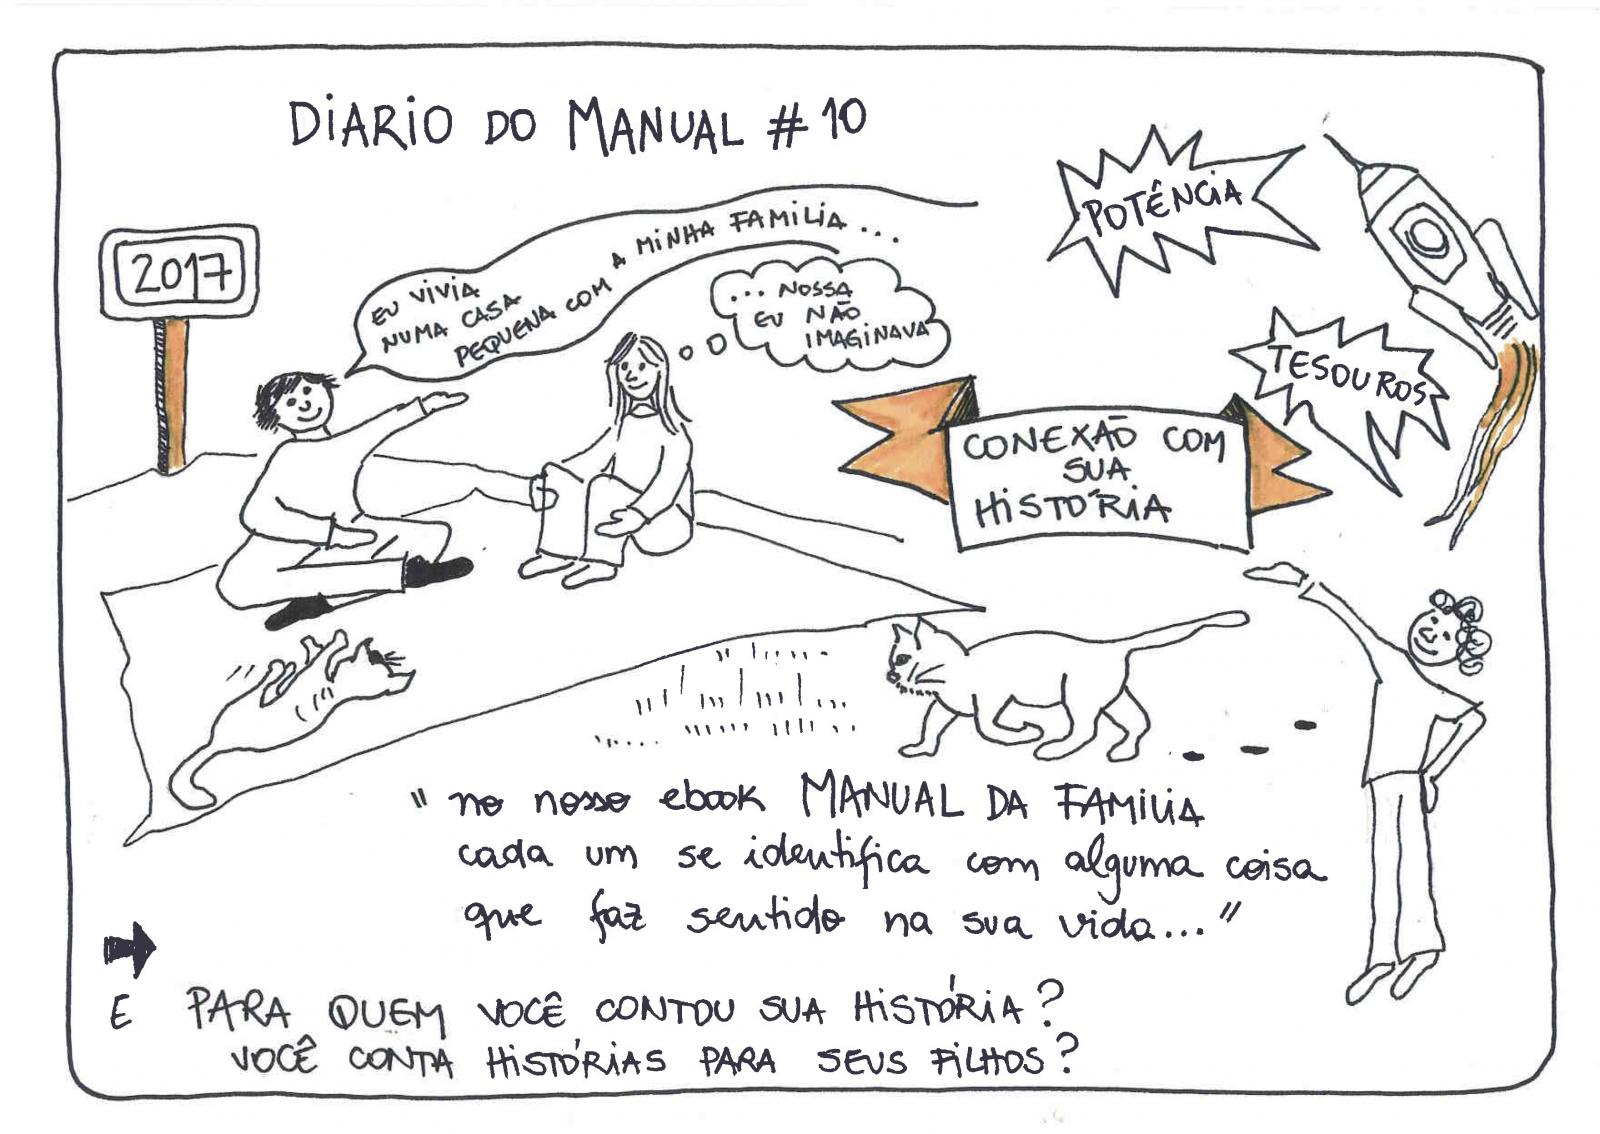 DIARIO DO MANUAL # 10
2017
EU VIVIA
NUMA CASA
PEQUENA COM A MINHA FAMILIA...
... NOSSA
EU NÃO
IMAGINAVA
POTÊNCIA
TESOUROS
CONEXÃO COM
SUA
HISTÓRIA
" no nosso ebook MANUAL DA FAMILIA
cada um se identifica com alguma coisa
que faz sentido na sua vida..."
E PARA QUEM VOCÊ CONTOU SUA HISTÓRIA?
VOCÊ CONTA HISTÓRIAS PARA SEUS FILHOS?